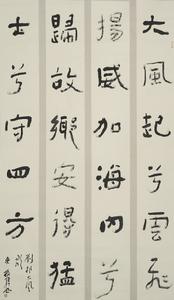 大風起兮雲飛
揚威加海內兮
歸故鄉安得猛
士兮守四方
劉邦大風